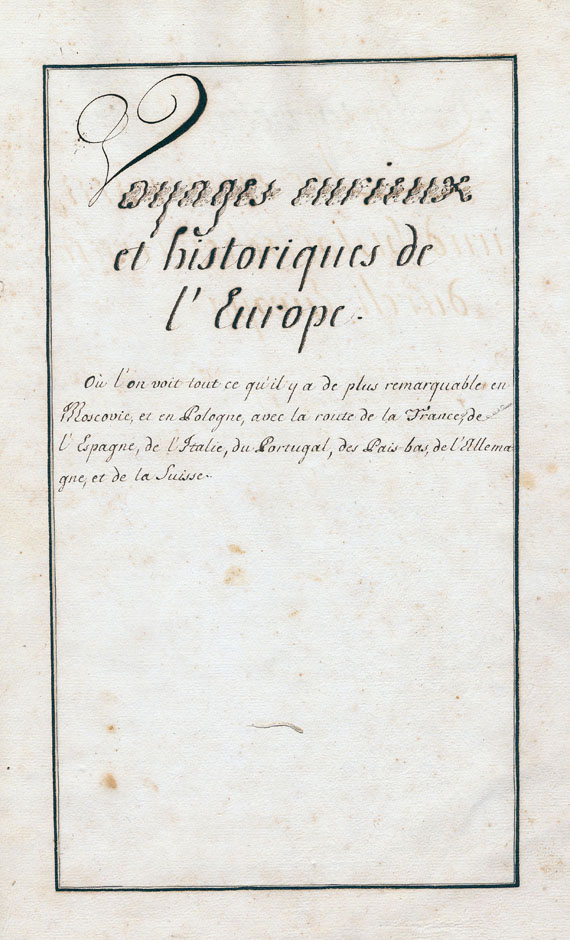 Voyages curieux
et historiques de
l'Europe.
Où l'on voit tout ce qu'il y a de plus remarquable en
Moscovie, et en Pologne, avec la route de la France, de
l'Espagne, de l'Italie, du Portugal, des Païs-bas, de l'Allema
gne, et de la Suisse.